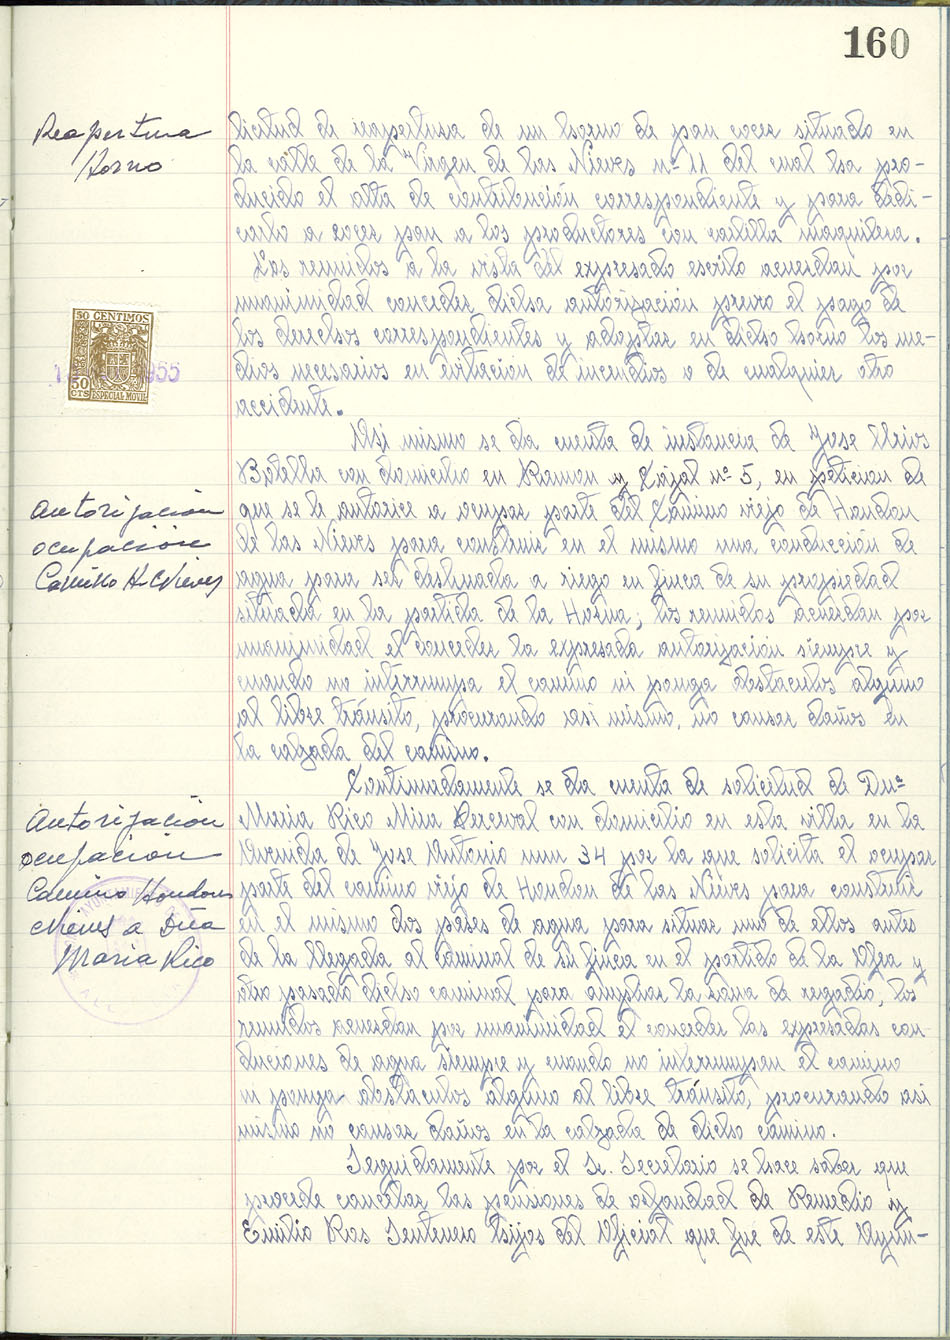 160
Reapertura
Horno
licitud de reapertura de un horno de pan cocer situado en
la calle de la Virgen de las Nieves nº 11 del cual ha pro-
ducido el alta de contribución correspondiente y para dedi-
carlo a cocer pan a los productores con cartilla maquilera.
Los reunidos a la vista del expresado escrito acuerdan por
unanimidad conceder dicha autorización previo el pago de
los derechos correspondientes y adoptar en dicho horno los me-
dios necesarios en evitacion de incendios o de cualquier otro
accidente.
50 CENTIMOS
50
CTS
ESPECIAL MOVIL
1955
Asi mismo se da cuenta de instancia de Jose Mira
Botella con domicilio en Ramon y Cajal nº 5, en peticion de
Autorización
ocupación
Camino H. Nieves
que se le autorice a ocupar parte del Camino viejo de Hondon
de las Nieves para construir en el mismo una conducción de
agua para ser destinada a riego en finca de su propiedad
situada en la partida de la Horna; los reunidos acuerdan por
unanimidad el conceder la expresada autorización siempre y
cuando no interrumpa el camino ni ponga obstaculos alguno
al libre tránsito, procurando asi mismo, no causar daños en
la calzada del camino.
Continuadamente se da cuenta de solicitud de Dnª
Autorización
ocupación
Camino Hondon
Nieves a Dña
Maria Rico
Maria Rico Mira Perceval con domicilio en esta villa en la
Avenida de Jose Antonio num 34 por la que solicita el ocupar
parte del camino viejo de Hondon de las Nieves para construir
en el mismo dos pases de agua para situar uno de ellos antes
de la llegada al caminal de su finca en el partido de la Algea y
otro pasado dicho caminal para ampliar la zona de regadio, los
reunidos acuerdan por unanimidad el conceder las expresadas con-
duciones de agua siempre y cuando no interrumpen el camino
ni ponga obstaculos alguno al libre tránsito, procurando asi
mismo no causar daños en la calzada de dicho camino.
Seguidamente por el Sr. Secretario se hace saber que
procede cancelar las pensiones de orfandad de Remedio y
Emilio Ros Sentenero hijos del Oficial que fué de este Ayun-